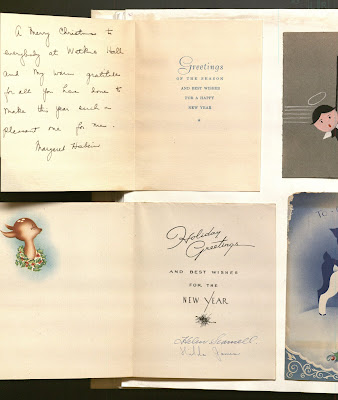 A Merry Christmas to
everybody at Watkins Hall
and my warm gratitude
for all you have done to
make this year such a
pleasant one for me.
Margaret
Greetings
OF THE SEASON
AND BEST WISHES
FOR A HAPPY
NEW YEAR
Holiday
Greetings
AND BEST WISHES
FOR THE
NEW YEAR
Helen
Hilda
TO